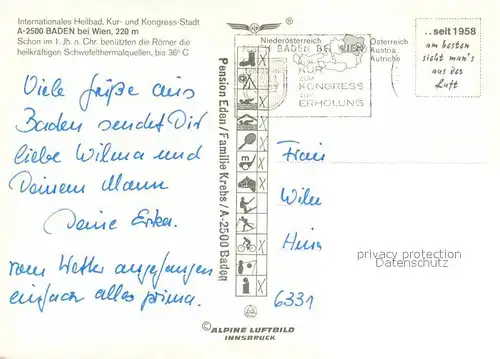 Internationales Heilbad, Kur- und Kongress-Stadt
A-2500 BADEN bei Wien, 220 m
Schon im 1. Jh. n. Chr. benützten die Römer die
heilkräftigen Schwefelthermalquellen, bis 36° C
Viele Grüße aus
Baden sendet Dir
liebe Wilma und
Deinem Mann
Deine Erika.
vom Wetter angefangen
einfach alles prima.
Pension Eden/Familie Krebs/A-2500 Baden
Niederösterreich
NACH BADEN BEI WIEN
ZUR
KUR
ZUM
KONGRESS
ZUR
ERHOLUNG
Österreich
Austria
Autriche
..seit 1958
am besten
sicht man's
aus der
Luft
Frau
Wilm
Hein
6331
privacy protection
Datenschutz
© ALPINE LUFTBILD
INNSBRUCK